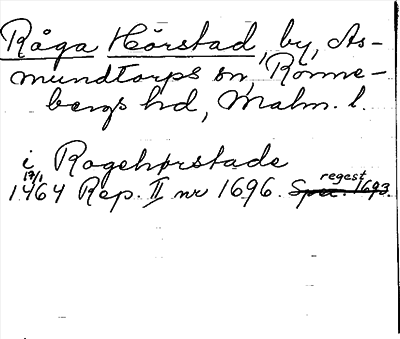 Råga Hörstad, by, As-
mundtorps sn, Rönne-
bergs hd, Malm. l.
i Rogehørstade
17/1
1464 Rep. II nr 1696. Spec. 1693.
regest